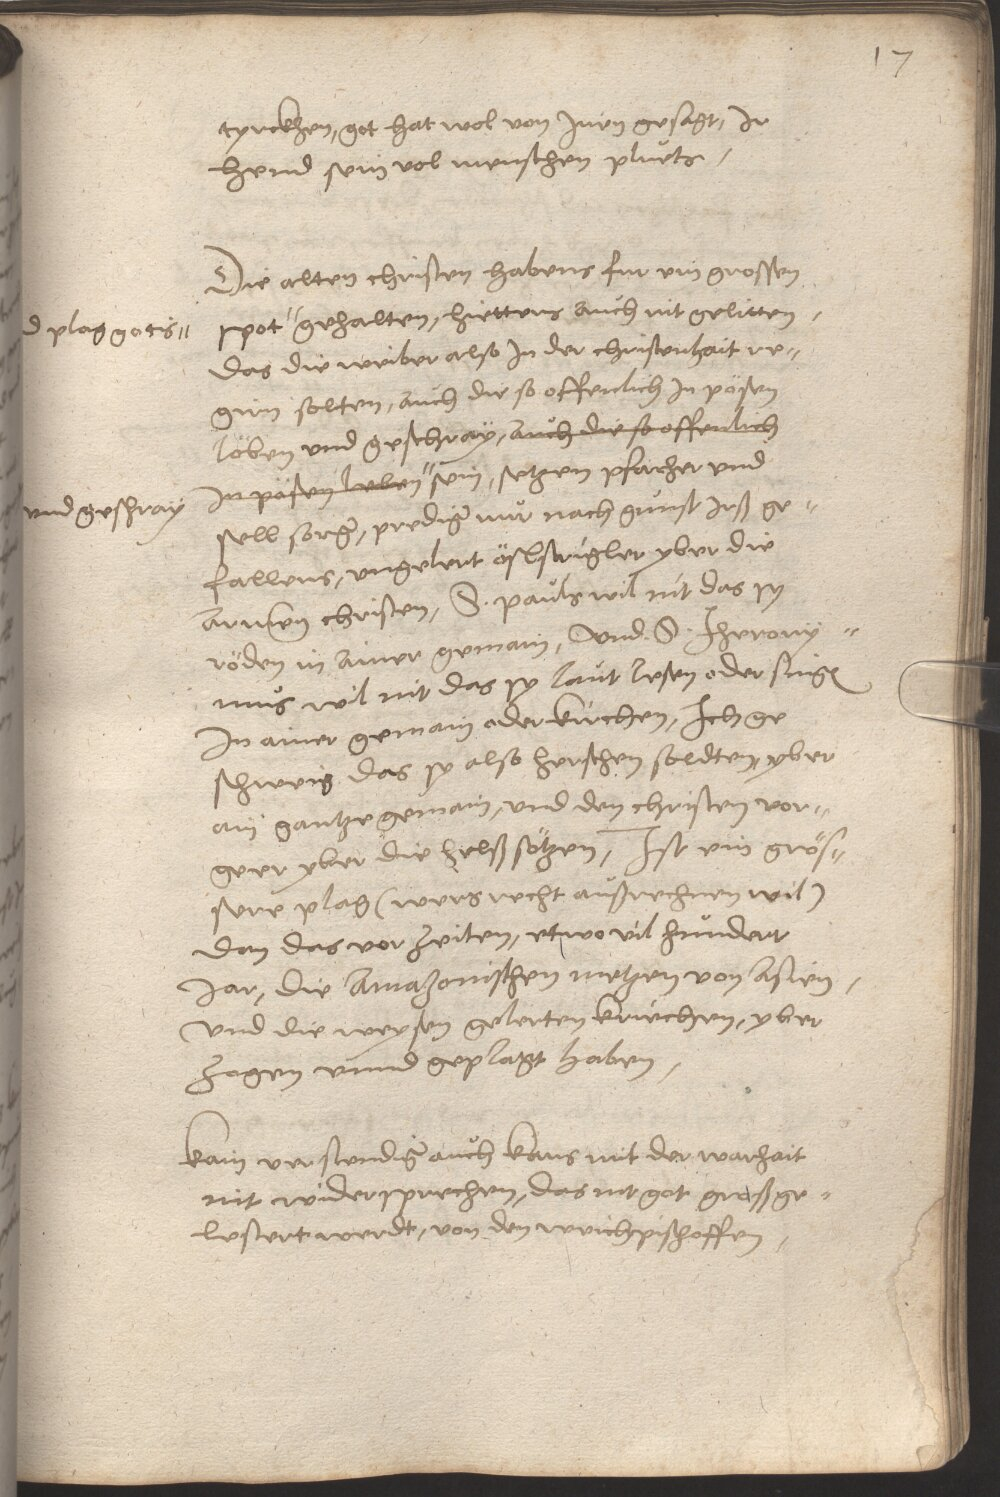 17
tyrckhen, got hat wol von Jnen gesagt, Ir
hend sein vol menschen pluets,
Die alten christen habens fur ein grossen
d plag gotis"
spot" gehalten, hiettens auch nit gelitten,
das die weiber also In der christenhait re-
girn solten, auch die so offenlich In pösen
löben und geschray, auch die so offenlich
vnd geschray
In pösen leben" sein, setzen pfarher vnd
sell sorg, predig nur nach gunst Irß ge-
fallens, vngelert yber die
armen christen, S. pauls wil nit das sy
röden in ainer gemain, Vnd S. Iherony-
mus wil nit das sy laut lesen oder sing
In ainer gemain oder kirchen, Ich ge
schweig das sy also herschen soldten, yber
ain gantze gemain, vnd den christen vor-
geer yber die helß sötzen, Ist ein grös-
sere plag (wers recht außrechnen wil)
dan das vor Zeiten, etwo vil hundert
Jar, die Amazonischen metzen von Asien,
Vnd die weysen gelerten kriechen, yber
Zogen vnnd geplagt haben,
kain verstendig auch kans mit der warhait
nit widersprechen, das nit got groß ge-
lestert werdt, von den weichpischoffen,